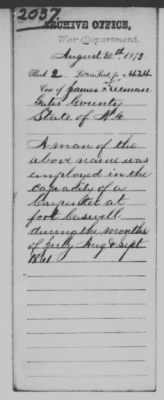 2037.
ARCHIVE OFFICE,
War Department.
August 30th 1873.
Book 2 Letters Ind. p. 424
Case of James Freeman
Gates County
State of N.C.
A man of the
above name was
employed in the
capacity of a
Carpenter at
fort Caswell
during the months
of July Aug & Sept
1861